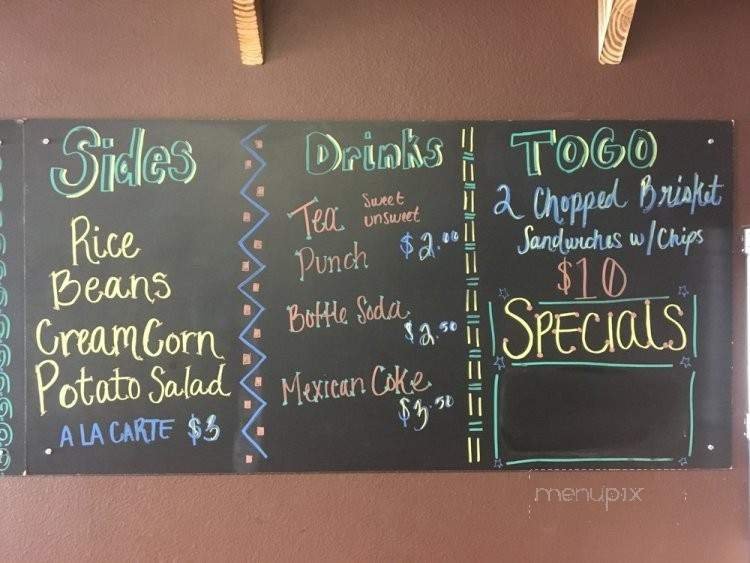 Sides
Rice
Beans
Cream Corn
Potato Salad
A LA CARTE $3
Drinks
Tea Sweet
unsweet
Punch $2.00
Bottle Soda
$2.50
Mexican Coke
$3.50
TOGO
2 Chopped Brisket
Sandwiches w/Chips
$10
SPECIALS
menupix